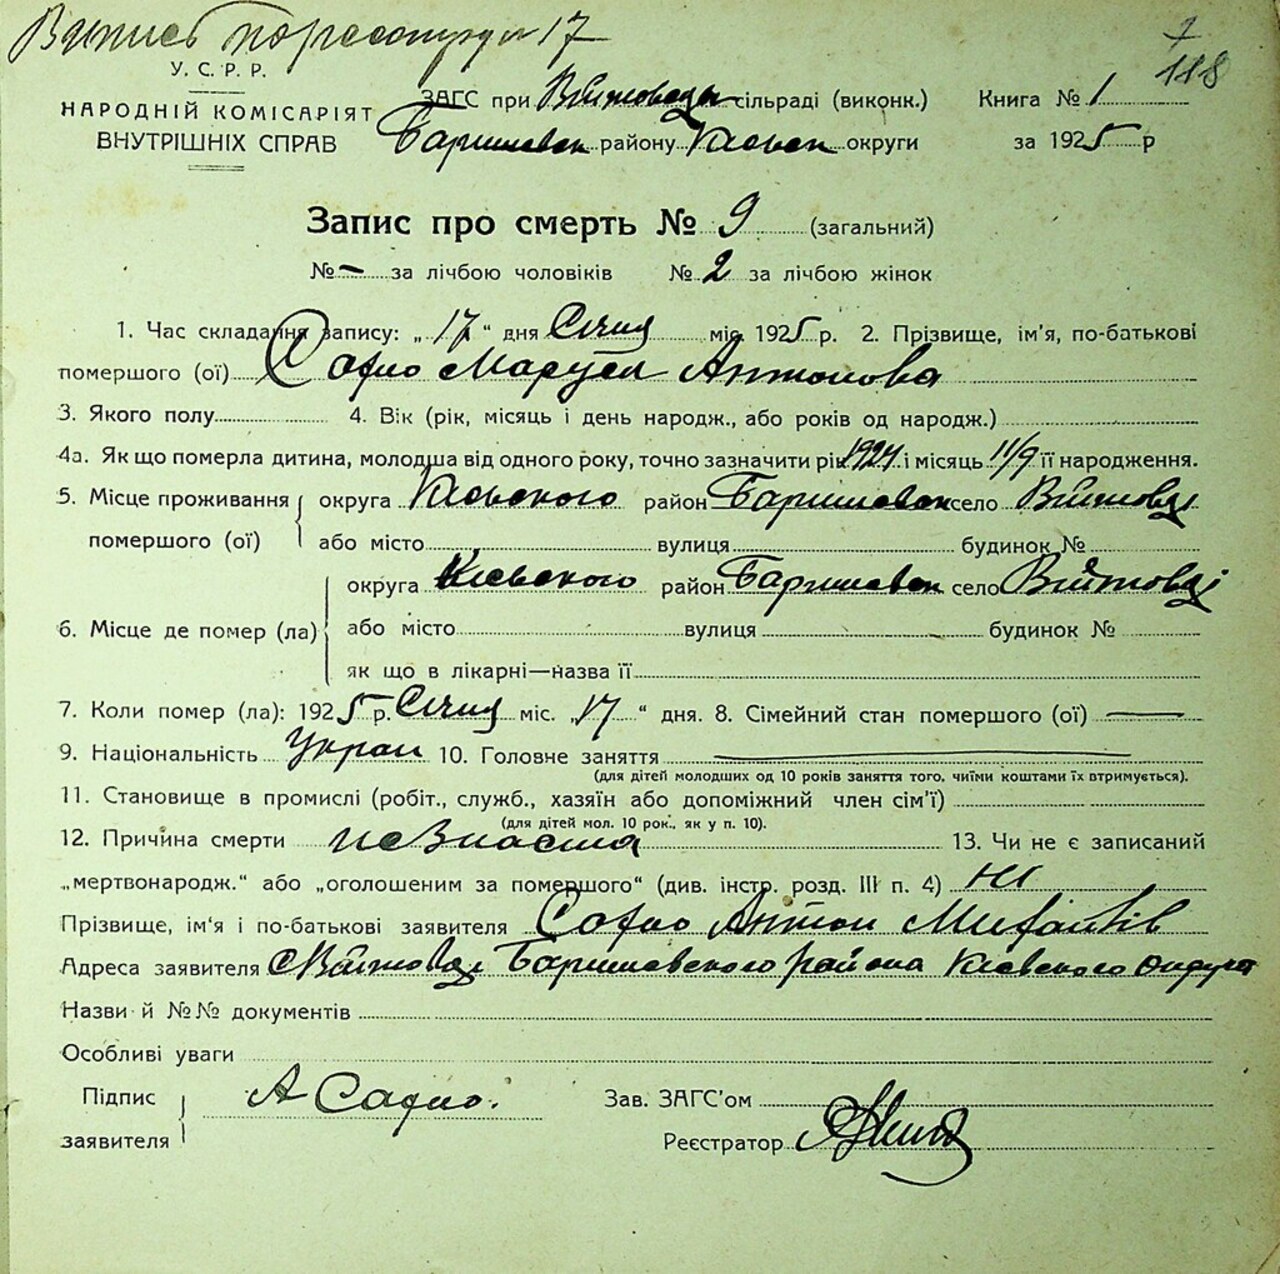 17
7
118
У. С. Р. Р.
НАРОДНІЙ КОМІСАРІЯТ
ВНУТРІШНІХ СПРАВ
ЗАГС при сільраді (виконк.) Книга № 1
Баришевск району Києвск округи за 1925 р
Запис про смерть № 9 (загальний)
№ – за лічбою чоловіків № 2 за лічбою жінок
1. Час складання запису: „ 17 “ дня Січня міс. 1925 р. 2. Прізвище, ім'я, по-батькові
помершого (ої) Маруся Антонова
3. Якого полу 4. Вік (рік, місяць і день народж., або років од народж.)
4а. Як що померла дитина, молодша від одного року, точно зазначити рік 1924 і місяць 11/9 її народження.
5. Місце проживання округа Києвского район Баришевск село Війтовці
помершого (ої) або місто вулиця будинок №
округа Києвского район Баришевск село Війтовці
6. Місце де помер (ла) або місто вулиця будинок №
як що в лікарні—назва її
7. Коли помер (ла): 1925 р. Січня міс. „ 17 “ дня. 8. Сімейний стан помершого (ої) —
9. Національність Украи 10. Головне заняття —
(для дітей молодших од 10 років заняття того, чиїми коштами їх втримується).
11. Становище в промислі (робіт., служб., хазяїн або допоміжний член сім'ї)
(для дітей мол. 10 рок., як у п. 10).
12. Причина смерти неВнасна 13. Чи не є записаний
„мертвонародж.“ або „оголошеним за помершого“ (див. інстр. розд. III п. 4) Ні
Прізвище, ім'я і по-батькові заявителя Антон
Адреса заявителя с Війтовці Баришевского района Києвского округа
Назви й №№ документів
Особливі уваги
Підпис А Зав. ЗАГС'ом
заявителя Реєстратор